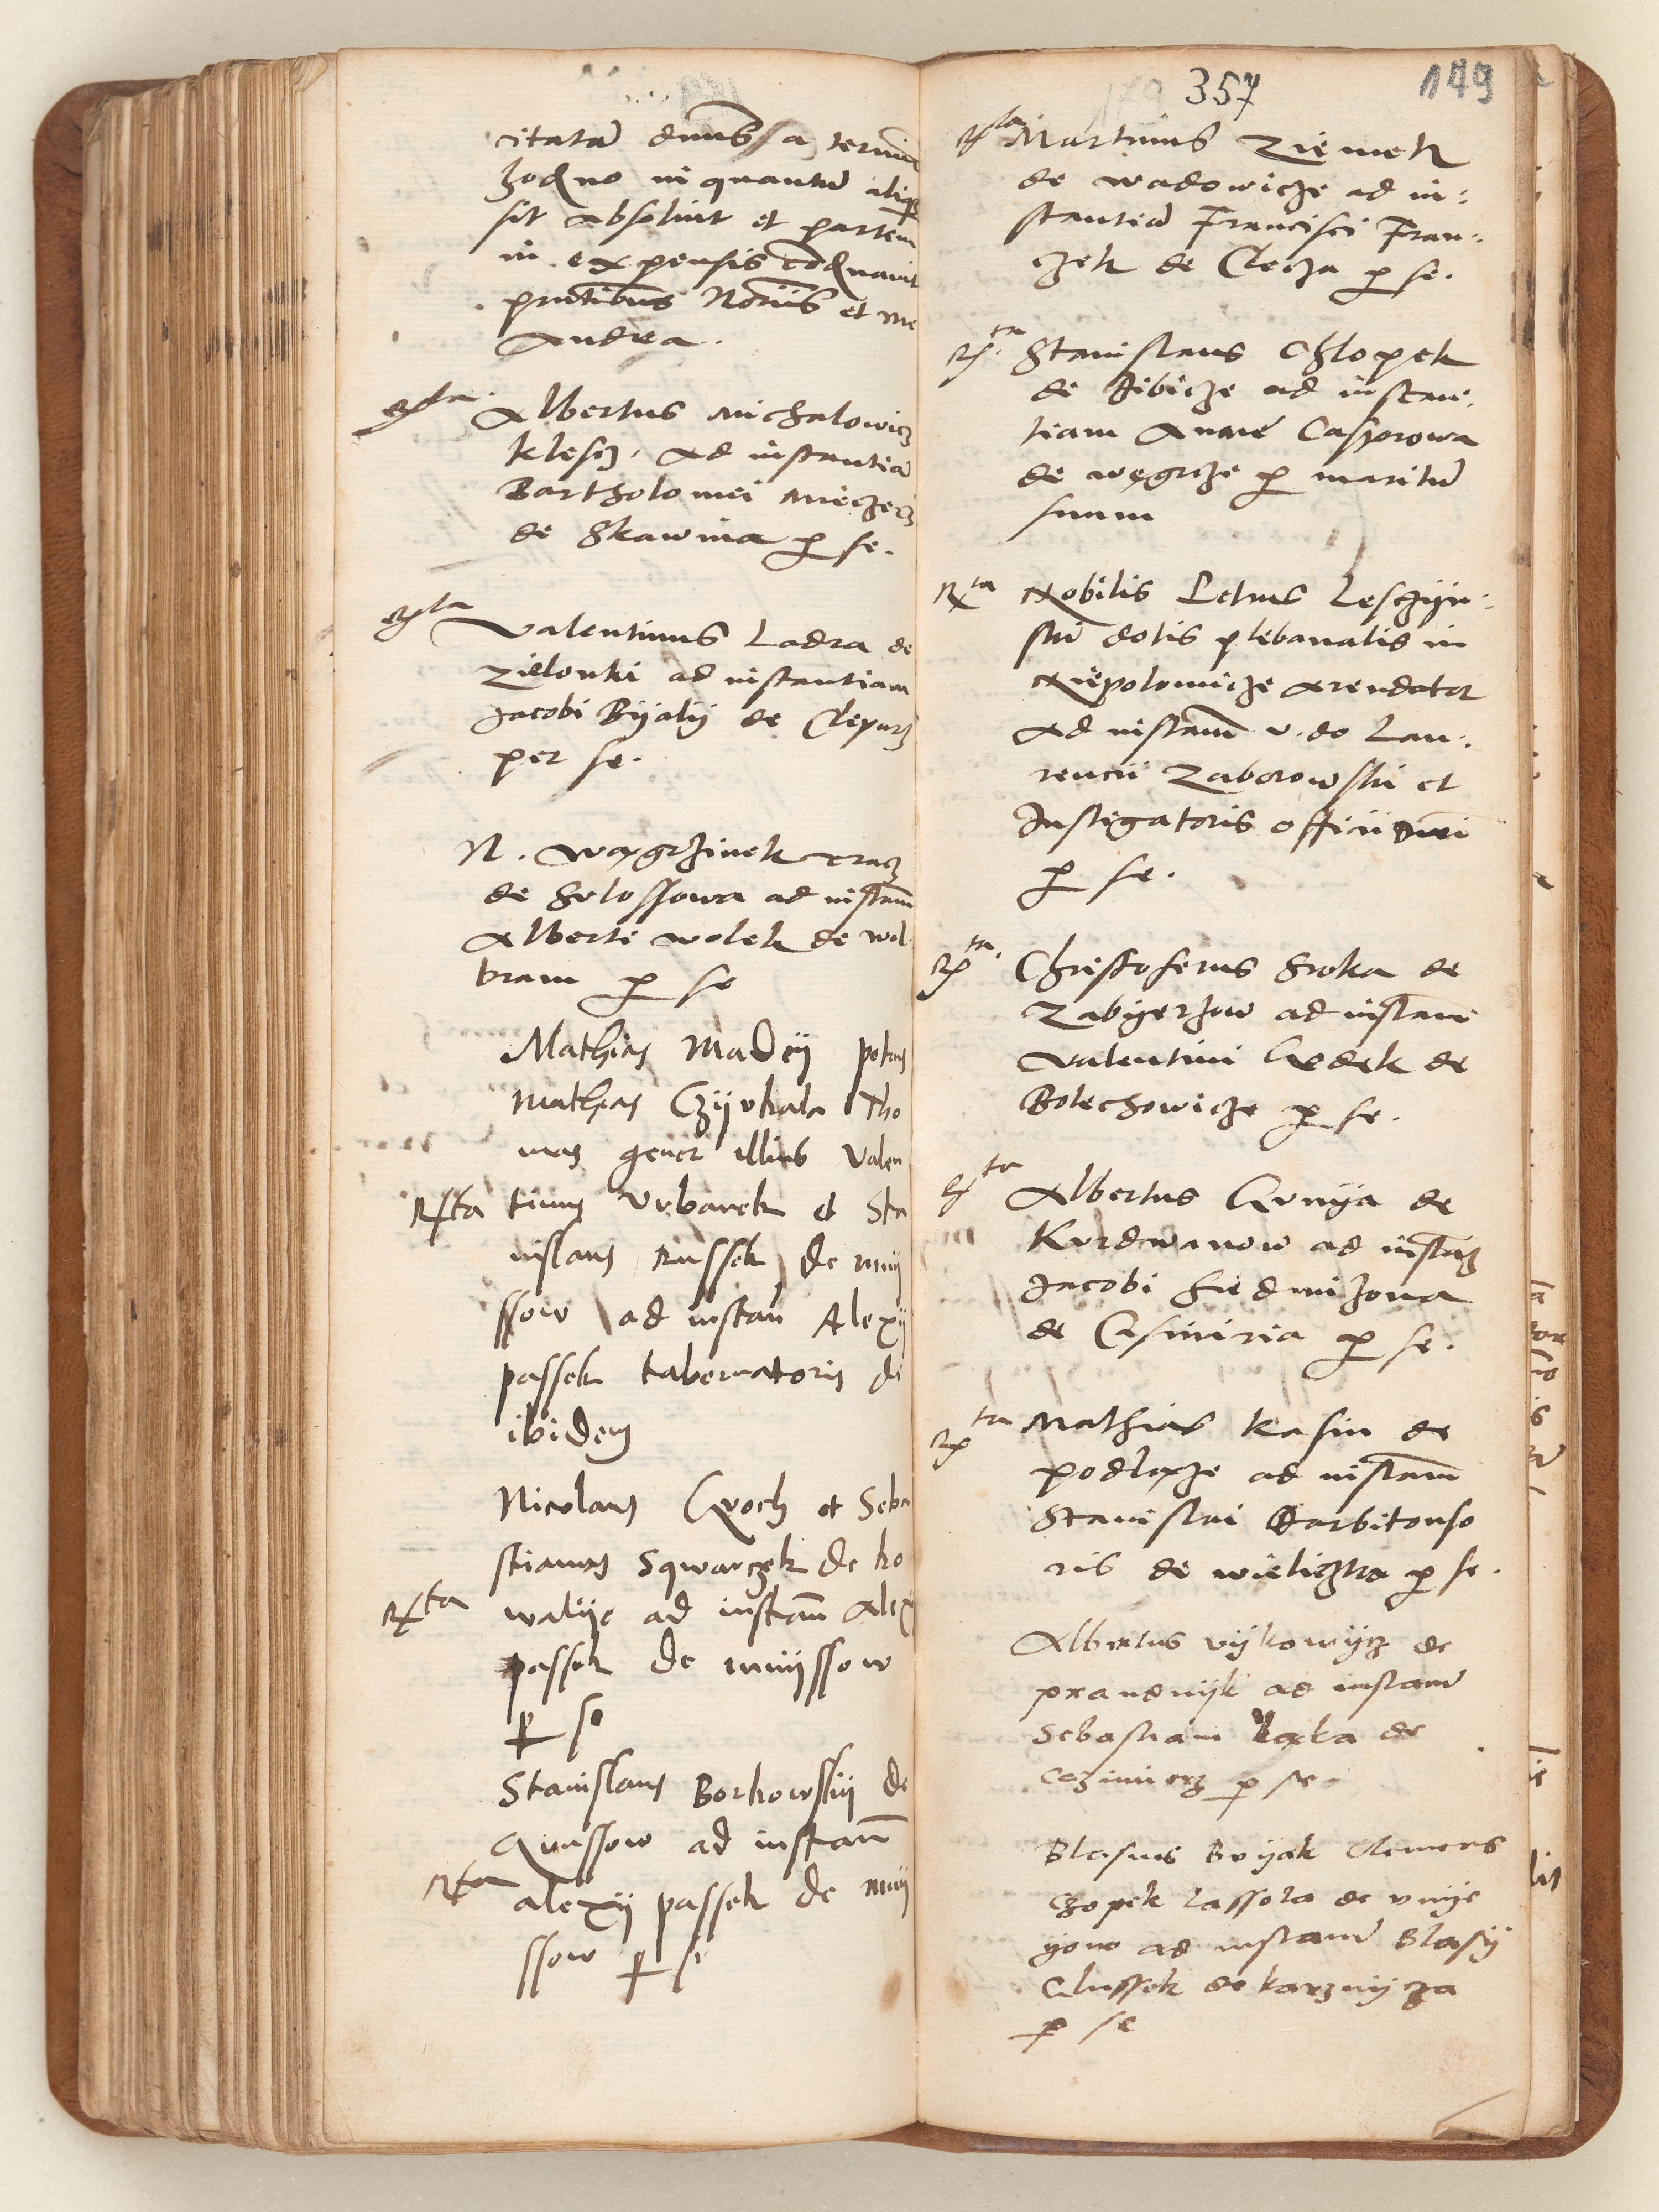 citatam dnus a termino
hodno in quantum aliqs
sit absoluit et partem
in expensis codnauit
pntibus Notriis et me
Andrea.
Rta Albertus Michalowicz
klesz. ad instantiam
Bartholomei Mieczerz
de Skawina p se.
Rta Valentinus Ladra de
Zielonki ad instantiam
Jacobi Bijalij de Cleparz
per se.
N. Wągrzinek
de ad instam
Alberti Wolek de Wol
bram p se
Mathias Madeij petrus
Mathias Czijrkala Tho
mas gener illius Valen
Rta tinus Vrbanek et Sta
nislaus Russek de mnij
ssow ad instan Alexij
passek tabernatoris de
ibidem
Nicolaus Groch et Seba
stianus Sqwarczek de ko
Rta walije ad instan Alexij
passek de mnijssow
p se
Stanislaus Borkowskij de
Qunssow ad instan
Rta alexij passek de mnij
ssow p se
357
149
Rta Martinus Ziemek
de Wadowicze ad in:
stantiam Francisci Fran:
czek de Clecza p se.
Rta Stanislaus Chlopek
de Bibicze ad instan:
tiam Annae Casprowa
de Węgrcze p maritum
suum
Rta Nobilis Petrus Leszczijn:
ski dotis plebanalis in
Niepolomicze Arendator
Ad instam v. do Lau:
rencii Zaborowski et
Instigatoris officii
p se.
Rta Christoferus Sroka de
Zabijerzow ad instam
Valentini Gedek de
Bolechowicze p se.
Rta Albertus Grnija de
Kurdwanow ad instam
Jacobi Siedmizona
de Casimiria p se.
Rta Mathias Kasin de
podłęże ad instam
Stanislai Barbitonso
ris de Wieliczka p se.
Albertus vijkowijcz de
prandnijk ad instam
Sebastiani kaczka de
cazimierz p se
Blasius Brijak Clemens
Czopek Lassota de vnije
ijow ad instam Blasij
Clussek de karznijcza
p se